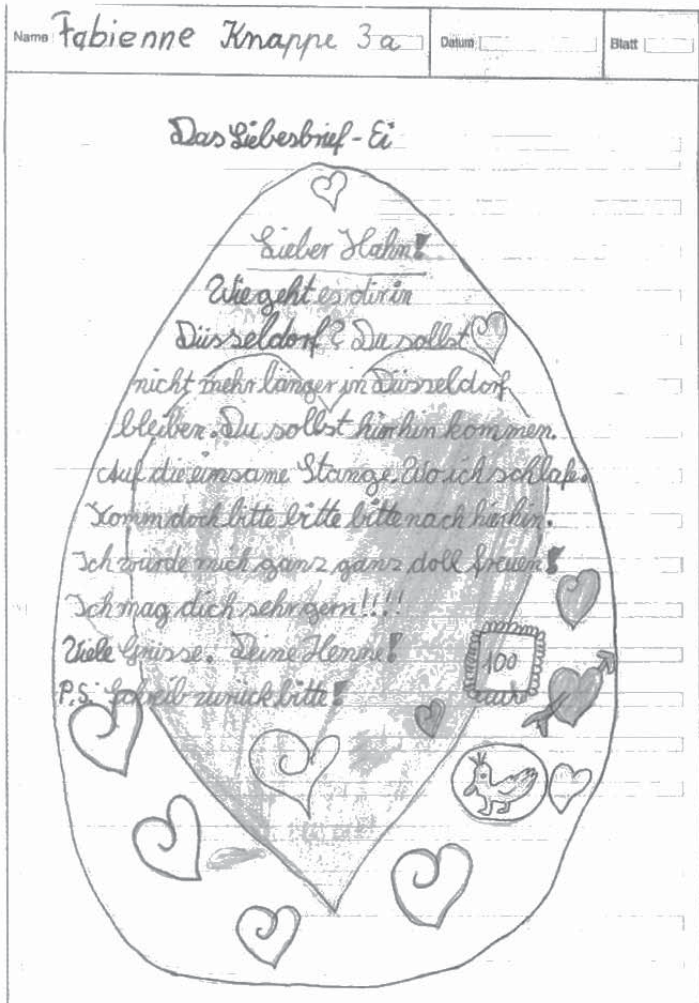 Name Fabienne Knappe 3a Datum Blatt
Das Liebesbrief-Ei
Lieber Hahn!
Wie geht es dir in
Düsseldorf? Du sollst
nicht mehr länger in Düsseldorf
bleiben. Du sollst hirhin kommen.
Auf die einsame Stange. Wo ich schlafe.
Komm doch bitte bitte bitte nach hirhin.
Ich würde mich ganz ganz doll freuen!
Ich mag dich sehr gern!!!!
Viele Grüsse. Deine Henne!
100
P.S. Schreib zurück bitte!